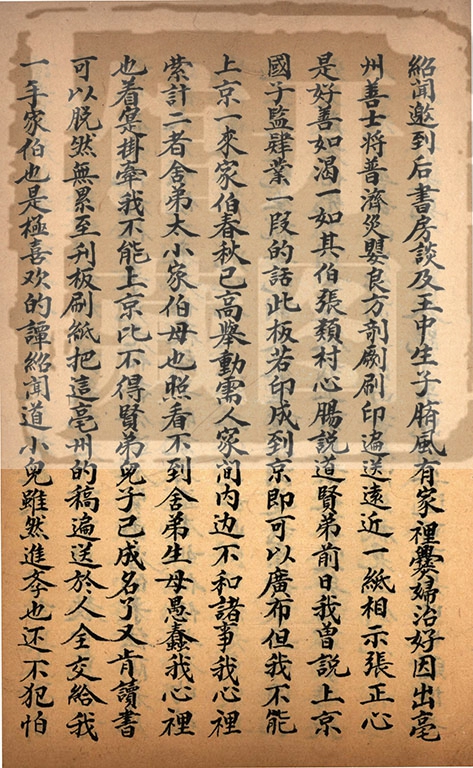 紹聞邀到后書房談及王中生子臍風有家裡爨婦治好因出亳
州善士将普濟災嬰良方剞劂刷印遍送遠近一紙相示張正心
是好善如渴一如其伯張類村心腸説道賢弟前日我曾説上京
國子監肆業一段的話此板若印成到京即可以廣布但我不能
上京一來家伯春秋已高舉動需人家间内边不和諸事我心裡
縈計二者舍弟太小家伯母也照看不到舍弟生母愚蠢我心裡
也着寔掛牽我不能上京比不得賢弟兒子已成名了又肯讀書
可以脱然無累至刋板刷紙把這亳州的稿遍送於人全交給我
一手家伯也是極喜欢的譚紹聞道小兒雖然進斈也还不犯怕